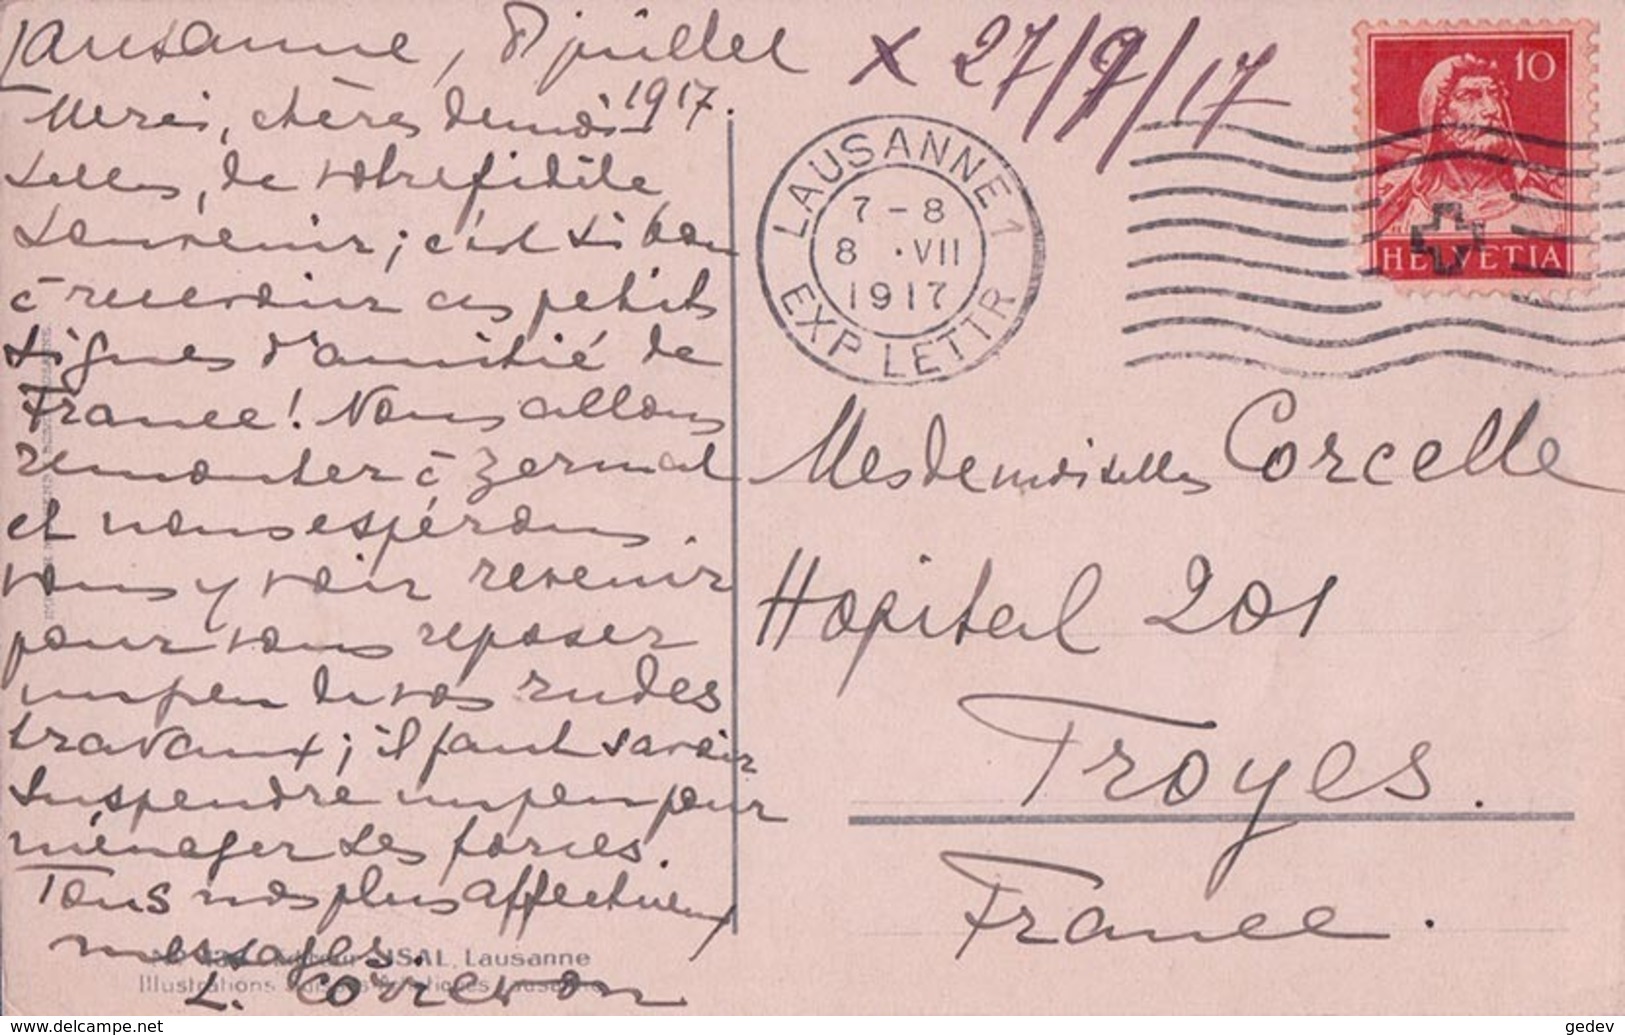 Lausanne, 8 juillet
1917.
Merci, chères demoi-
selles, de votre fidèle
souvenir; c'est si bon
à recevoir ces petits
signes d'amitié de
France! Nous allons
remonter à Zermat
et nous espérons
vous y voir revenir
pour vous reposer
un peu de vos rudes
travaux; il faut savoir
suspendre un peu pour
ménager ses forces.
Tous nos plus affectueux
messages.
L.
Lausanne
Illustrations
x 27/7/17
LAUSANNE 1
7-8
8 . VII
1917
EXP. LETTR.
10
HELVETIA
Mesdemoiselles Corcelle
Hopital 201
Troyes.
France.
www.delcampe.net
gedev